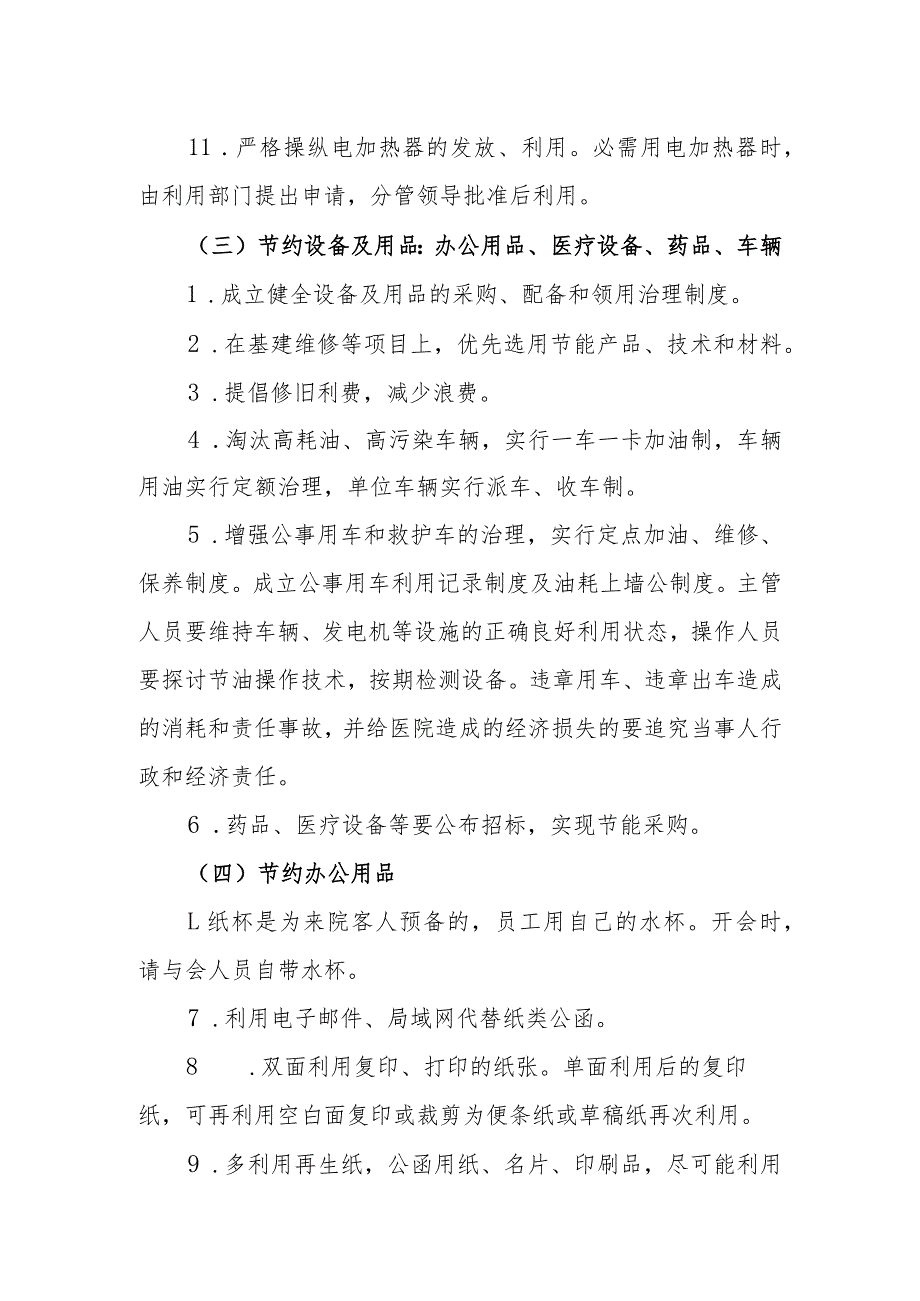 11 .严格操纵电加热器的发放、利用。必需用电加热器时,
由利用部门提出申请，分管领导批准后利用。
（三）节约设备及用品：办公用品、医疗设备、药品、车辆
1 .成立健全设备及用品的采购、配备和领用治理制度。
2 .在基建维修等项目上，优先选用节能产品、技术和材料。
3 .提倡修旧利费，减少浪费。
4 .淘汰高耗油、高污染车辆，实行一车一卡加油制，车辆
用油实行定额治理，单位车辆实行派车、收车制。
5 .增强公事用车和救护车的治理，实行定点加油、维修、
保养制度。成立公事用车利用记录制度及油耗上墙公制度。主管
人员要维持车辆、发电机等设施的正确良好利用状态，操作人员
要探讨节油操作技术，按期检测设备。违章用车、违章出车造成
的消耗和责任事故，并给医院造成的经济损失的要追究当事人行
政和经济责任。
6 .药品、医疗设备等要公布招标，实现节能采购。
（四）节约办公用品
L纸杯是为来院客人预备的，员工用自己的水杯。开会时,
请与会人员自带水杯。
7 .利用电子邮件、局域网代替纸类公函。
8 .双面利用复印、打印的纸张。单面利用后的复印
纸，可再利用空白面复印或裁剪为便条纸或草稿纸再次利用。
9 .多利用再生纸，公函用纸、名片、印刷品，尽可能利用